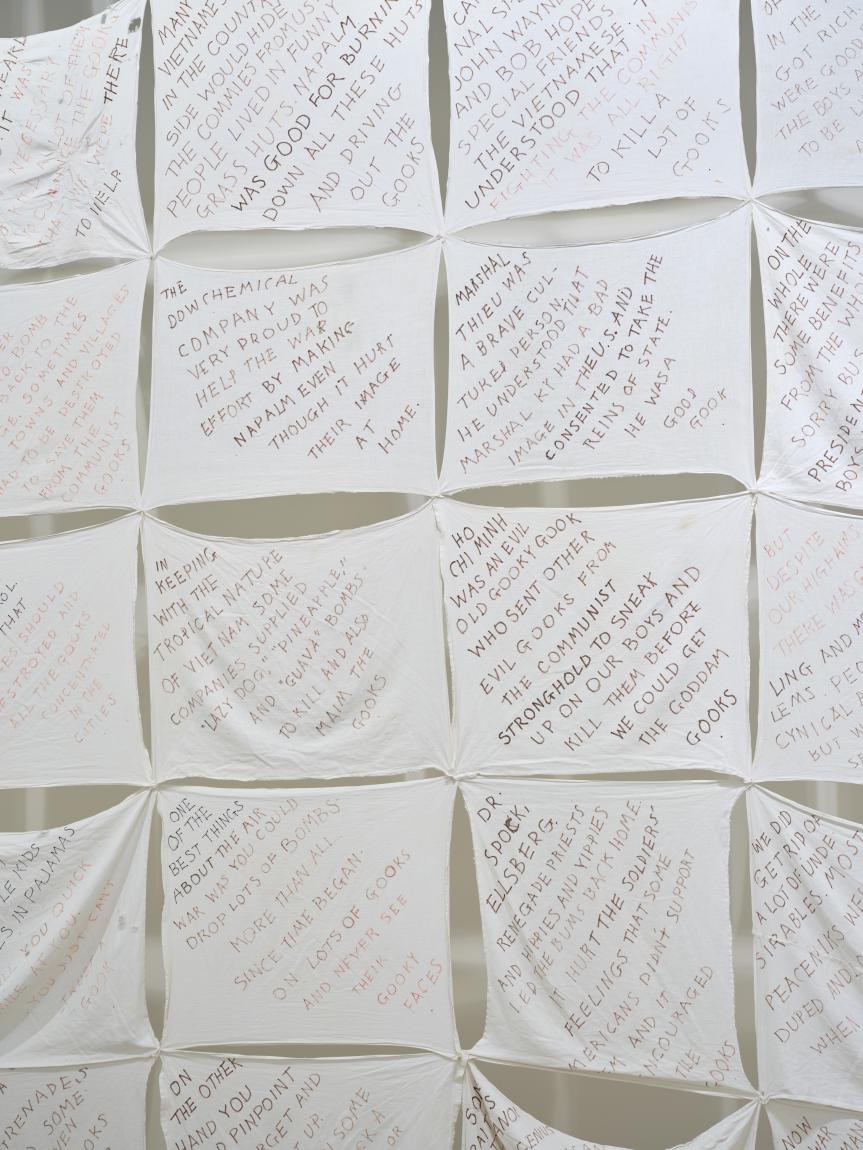 THERE
TO HELP
MANY
VIETNAME
IN THE COUNTR
SIDE WOULD HIDE
THE COMMIES FROM US.
PEOPLE LIVED IN FUNNY
GRASS HUTS. NAPALM
WAS GOOD FOR BURNIN
DOWN ALL THESE HUTS
AND DRIVING
OUT THE
GOOKS
NAL
JOHN WAYNE
AND BOB HOPE
SPECIAL FRIENDS
THE VIETNAMESE
UNDERSTOOD THAT IN
FIGHTING THE COMMUNIS
IT WAS ALL RIGHT
TO KILL A
LOT OF
GOOKS
IN THE
GOT RICH
WERE GOOD
THE BOYS
TO BE
BOMB
BACK TO THE
SOMETIMES
TOWNS AND VILLAGES
HAD TO BE DESTROYED
TO SAVE THEM
FROM THE
COMMUNIST
GOOKS
THE
DOW CHEMICAL
COMPANY WAS
VERY PROUD TO
HELP THE WAR
EFFORT BY MAKING
NAPALM EVEN
THOUGH IT HURT
THEIR IMAGE
AT
HOME.
MARSHAL
THIEU WAS
A BRAVE CUL-
TURED PERSON.
HE UNDERSTOOD THAT
MARSHAL KY HAD A BAD
IMAGE IN THE U.S. AND
CONSENTED TO TAKE THE
REINS OF STATE.
HE WAS A
GOOD
GOOK
ON THE
WHOLE
THERE WERE
SOME BENEFITS
FROM THE WH
SORRY BUS
PRESIDEN
BOYS
THAT
ES SHOULD
DESTROYED AND
ALL THE GOOKS
CONCENTRATED
IN THE
CITIES
IN
KEEPING
WITH THE
TROPICAL NATURE
OF VIET NAM SOME
COMPANIES SUPPLIED
"LAZY DOG," "PINEAPPLE,"
AND "GUAVA" BOMBS
TO KILL AND ALSO
MAIM THE
GOOKS
HO
CHI MINH
WAS AN EVIL
OLD GOOKY GOOK
WHO SENT OTHER
EVIL GOOKS FROM
THE COMMUNIST
STRONGHOLD TO SNEAK
UP ON OUR BOYS AND
KILL THEM BEFORE
WE COULD GET
THE GODDAM
GOOKS
BUT
DESPITE
OUR HIGH AIMS
THERE WAS
LING AND
LEMS. PE
CYNICAL
BUT
LE KIDS
ES IN PAJAMAS
YOU QUICK
AT YOU.
YOU JUST CAN'T
GOOK
ONE
OF THE
BEST THINGS
ABOUT THE AIR
WAR WAS YOU COULD
DROP LOTS OF BOMBS
MORE THAN ALL
SINCE TIME BEGAN.
ON LOTS OF GOOKS
AND NEVER SEE
THEIR
GOOKY
FACES
DR.
SPOCK,
ELLSBERG.
RENEGADE PRIESTS
AND HIPPIES AND YIPPIES
LED THE BUMS BACK HOME.
IT HURT THE SOLDIERS'
FEELINGS THAT SOME
MERICANS DIDN'T SUPPORT
EM AND IT
NCOURAGED
THE
GOOKS
WE DID
GET RID OF
A LOT OF UNDE
SIRABLES. MOS
PEACENIKS
DUPED AND
WHEN
GRENADES
SOME
EN
OKS
ON
THE OTHER
HAND YOU
D PINPOINT
RGET AND
UP.
SOME
OR
NOW